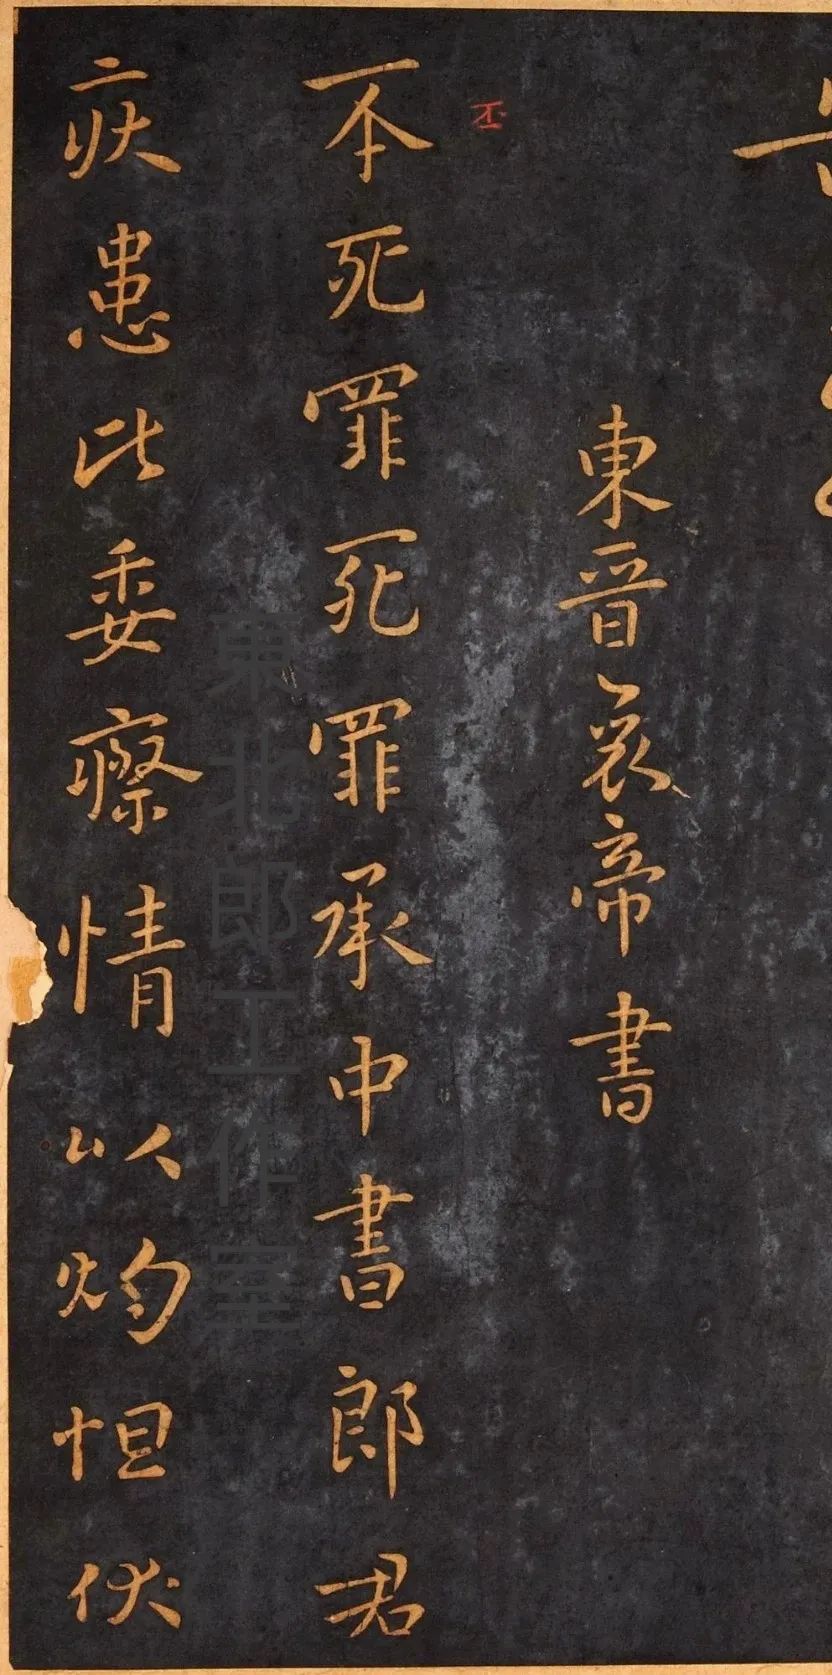 東晉哀帝書
丕
丕死罪死罪承中書郎君
疾患比委瘵情以灼怛伏
東北郎工作室